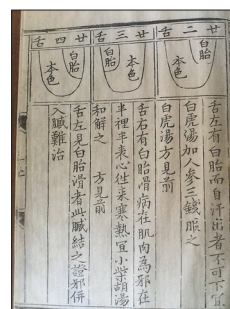 廿二舌
白胎
本色
舌左有白胎而自汗出者不可下宜
白虎湯加人參三錢服之
白虎湯方見前
廿三舌
白胎
本色
舌右有白胎滑病在肌肉為邪在
半裡半表必往來寒熱宜小柴胡湯
和解之 方見前
廿四舌
白胎
本色
舌左見白胎滑者此臟結之證邪併
入臟難治